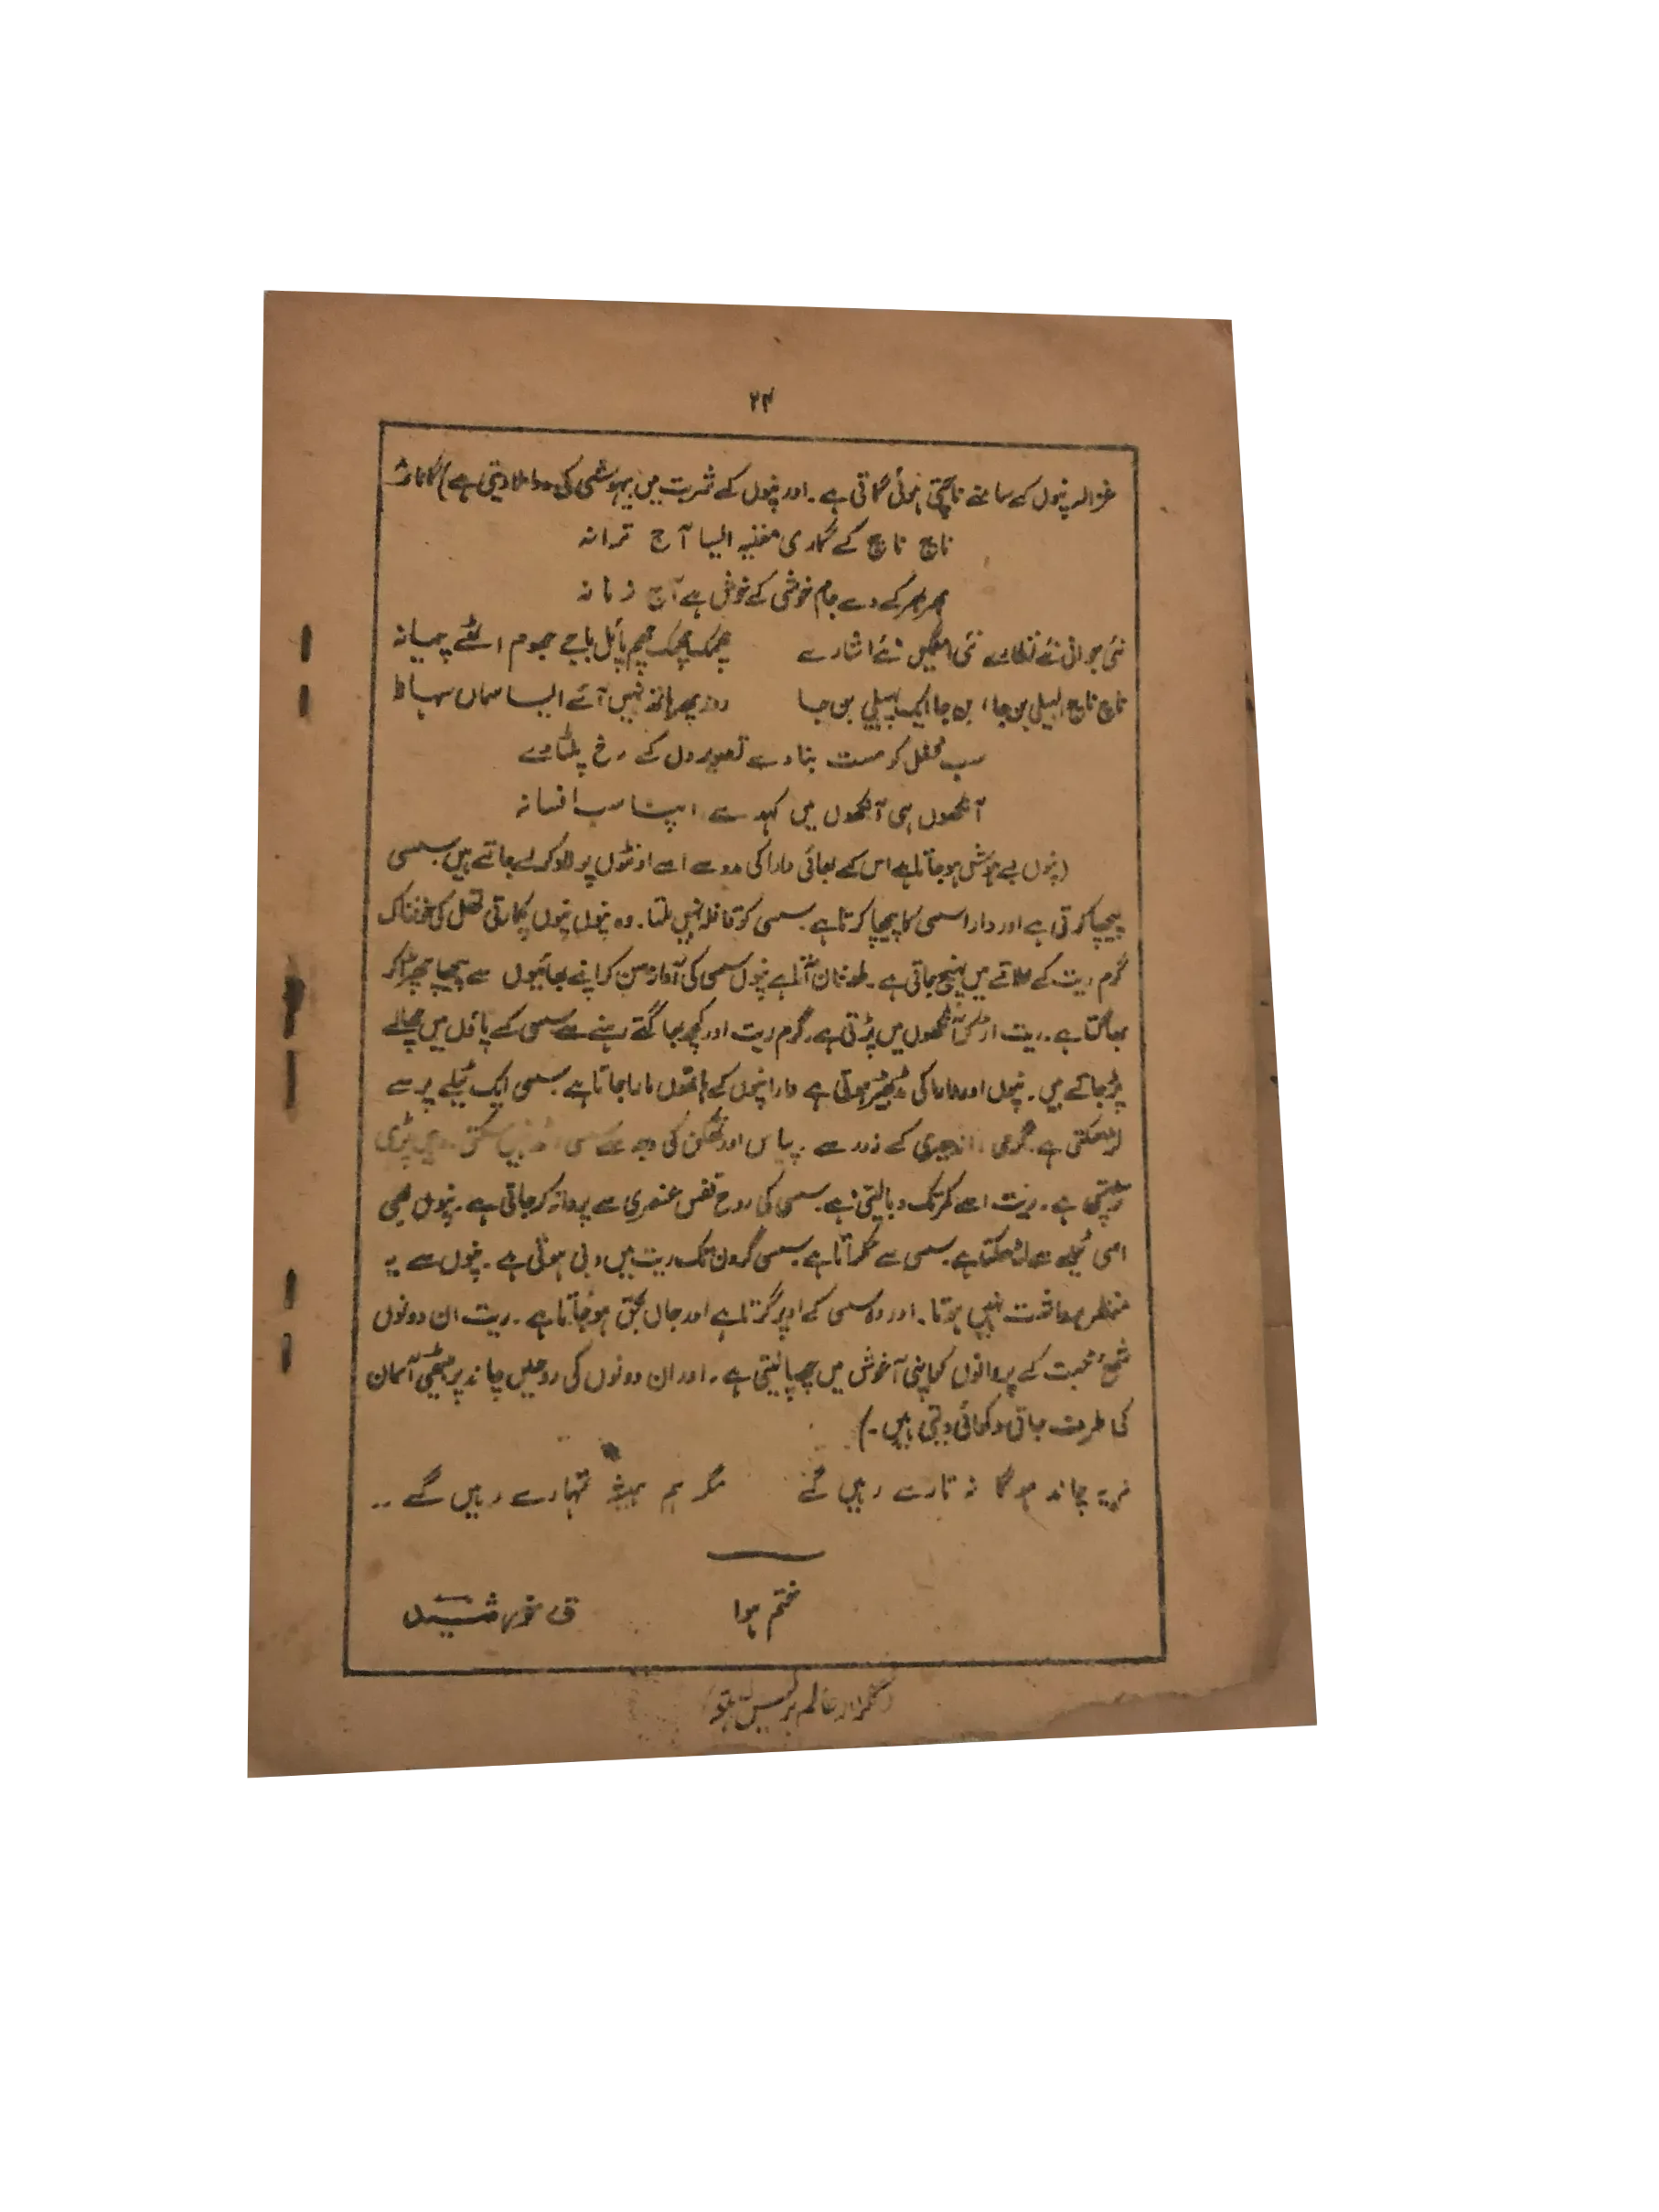 ۲۴
غزالہ پنوں کے سامنے ناچتی ہوئی گاتی ہے۔ اور پنوں کے شربت میں بیہوشی کی دوا ملا دیتی ہے) گانا
ناچ ناچ کے گاری مغنیہ ایسا آج ترانہ
بھر بھر کے دے جام خوشی کے خوش ہے آج زمانہ
نئی جوانی نئے نظارے نئی امنگیں نئے اشارے چھمک چھمک چھم پائل باجے جھوم اٹھے پیمانہ
ناچ ناچ البیلی بن جا، بن جا ایک پہیلی بن جا روز پھر ہاتھ نہیں آئے ایسا سماں سہانا
سب محفل کو مست بنا دے تصویر دل کے رخ پلٹا دے
آنکھوں ہی آنکھوں میں کہدے اپنا سب افسانہ
(پنوں بے ہوش ہو جاتا ہے اس کے بھائی دارا کی مدد سے اسے اونٹوں پر لاد کر لے جاتے ہیں سسی
پیچھا کرتی ہے اور دارا سسی کا پیچھا کرتا ہے سسی کو قافلہ نہیں ملتا۔ وہ پنوں پنوں پکارتی تھل کی خوفناک
گرم ریت کے علاقے میں پہنچ جاتی ہے۔ طوفان آتا ہے پنوں سسی کی آواز سن کر اپنے بھائیوں سے پیچھا چھڑا کر
بھاگتا ہے۔ ریت اڑ کر آنکھوں میں پڑتی ہے۔ گرم ریت اور کچھ بھاگتے رہنے سے سسی کے پاؤں میں چھالے
پڑ جاتے ہیں۔ پنوں اور دارا کی مڈبھیڑ ہوتی ہے دارا پنوں کے ہاتھوں مارا جاتا ہے سسی ایک ٹیلے پر سے
لڑھکتی ہے گرمی اندھیری کے زور سے۔ پیاس اور تھکن کی وجہ سے سسی اٹھ نہیں سکتی۔ وہیں پڑی
تڑپتی ہے۔ ریت اسے کمر تک دبا لیتی ہے۔ سسی کی روح قفس عنصری سے پرواز کر جاتی ہے۔ پنوں بھی
اسی ٹیلے سے لڑھکتا ہے سسی سے ٹکراتا ہے سسی گردن تک ریت میں دبی ہوتی ہے۔ پنوں سے یہ
منظر برداشت نہیں ہوتا۔ اور وہ سسی کے اوپر گرتا ہے اور جاں بحق ہو جاتا ہے۔ ریت ان دونوں
شمع محبت کے پروانوں کو اپنی آغوش میں چھپا لیتی ہے۔ اور ان دونوں کی روحیں چاند پر بیٹھی آسمان
کی طرف جاتی دکھائی دیتی ہیں۔)
نہ یہ چاند ہوگا نہ تارے رہیں گے مگر ہم ہمیشہ تمہارے رہیں گے ..
ختم ہوا
ق خورشید
(گلزار عالم پریس